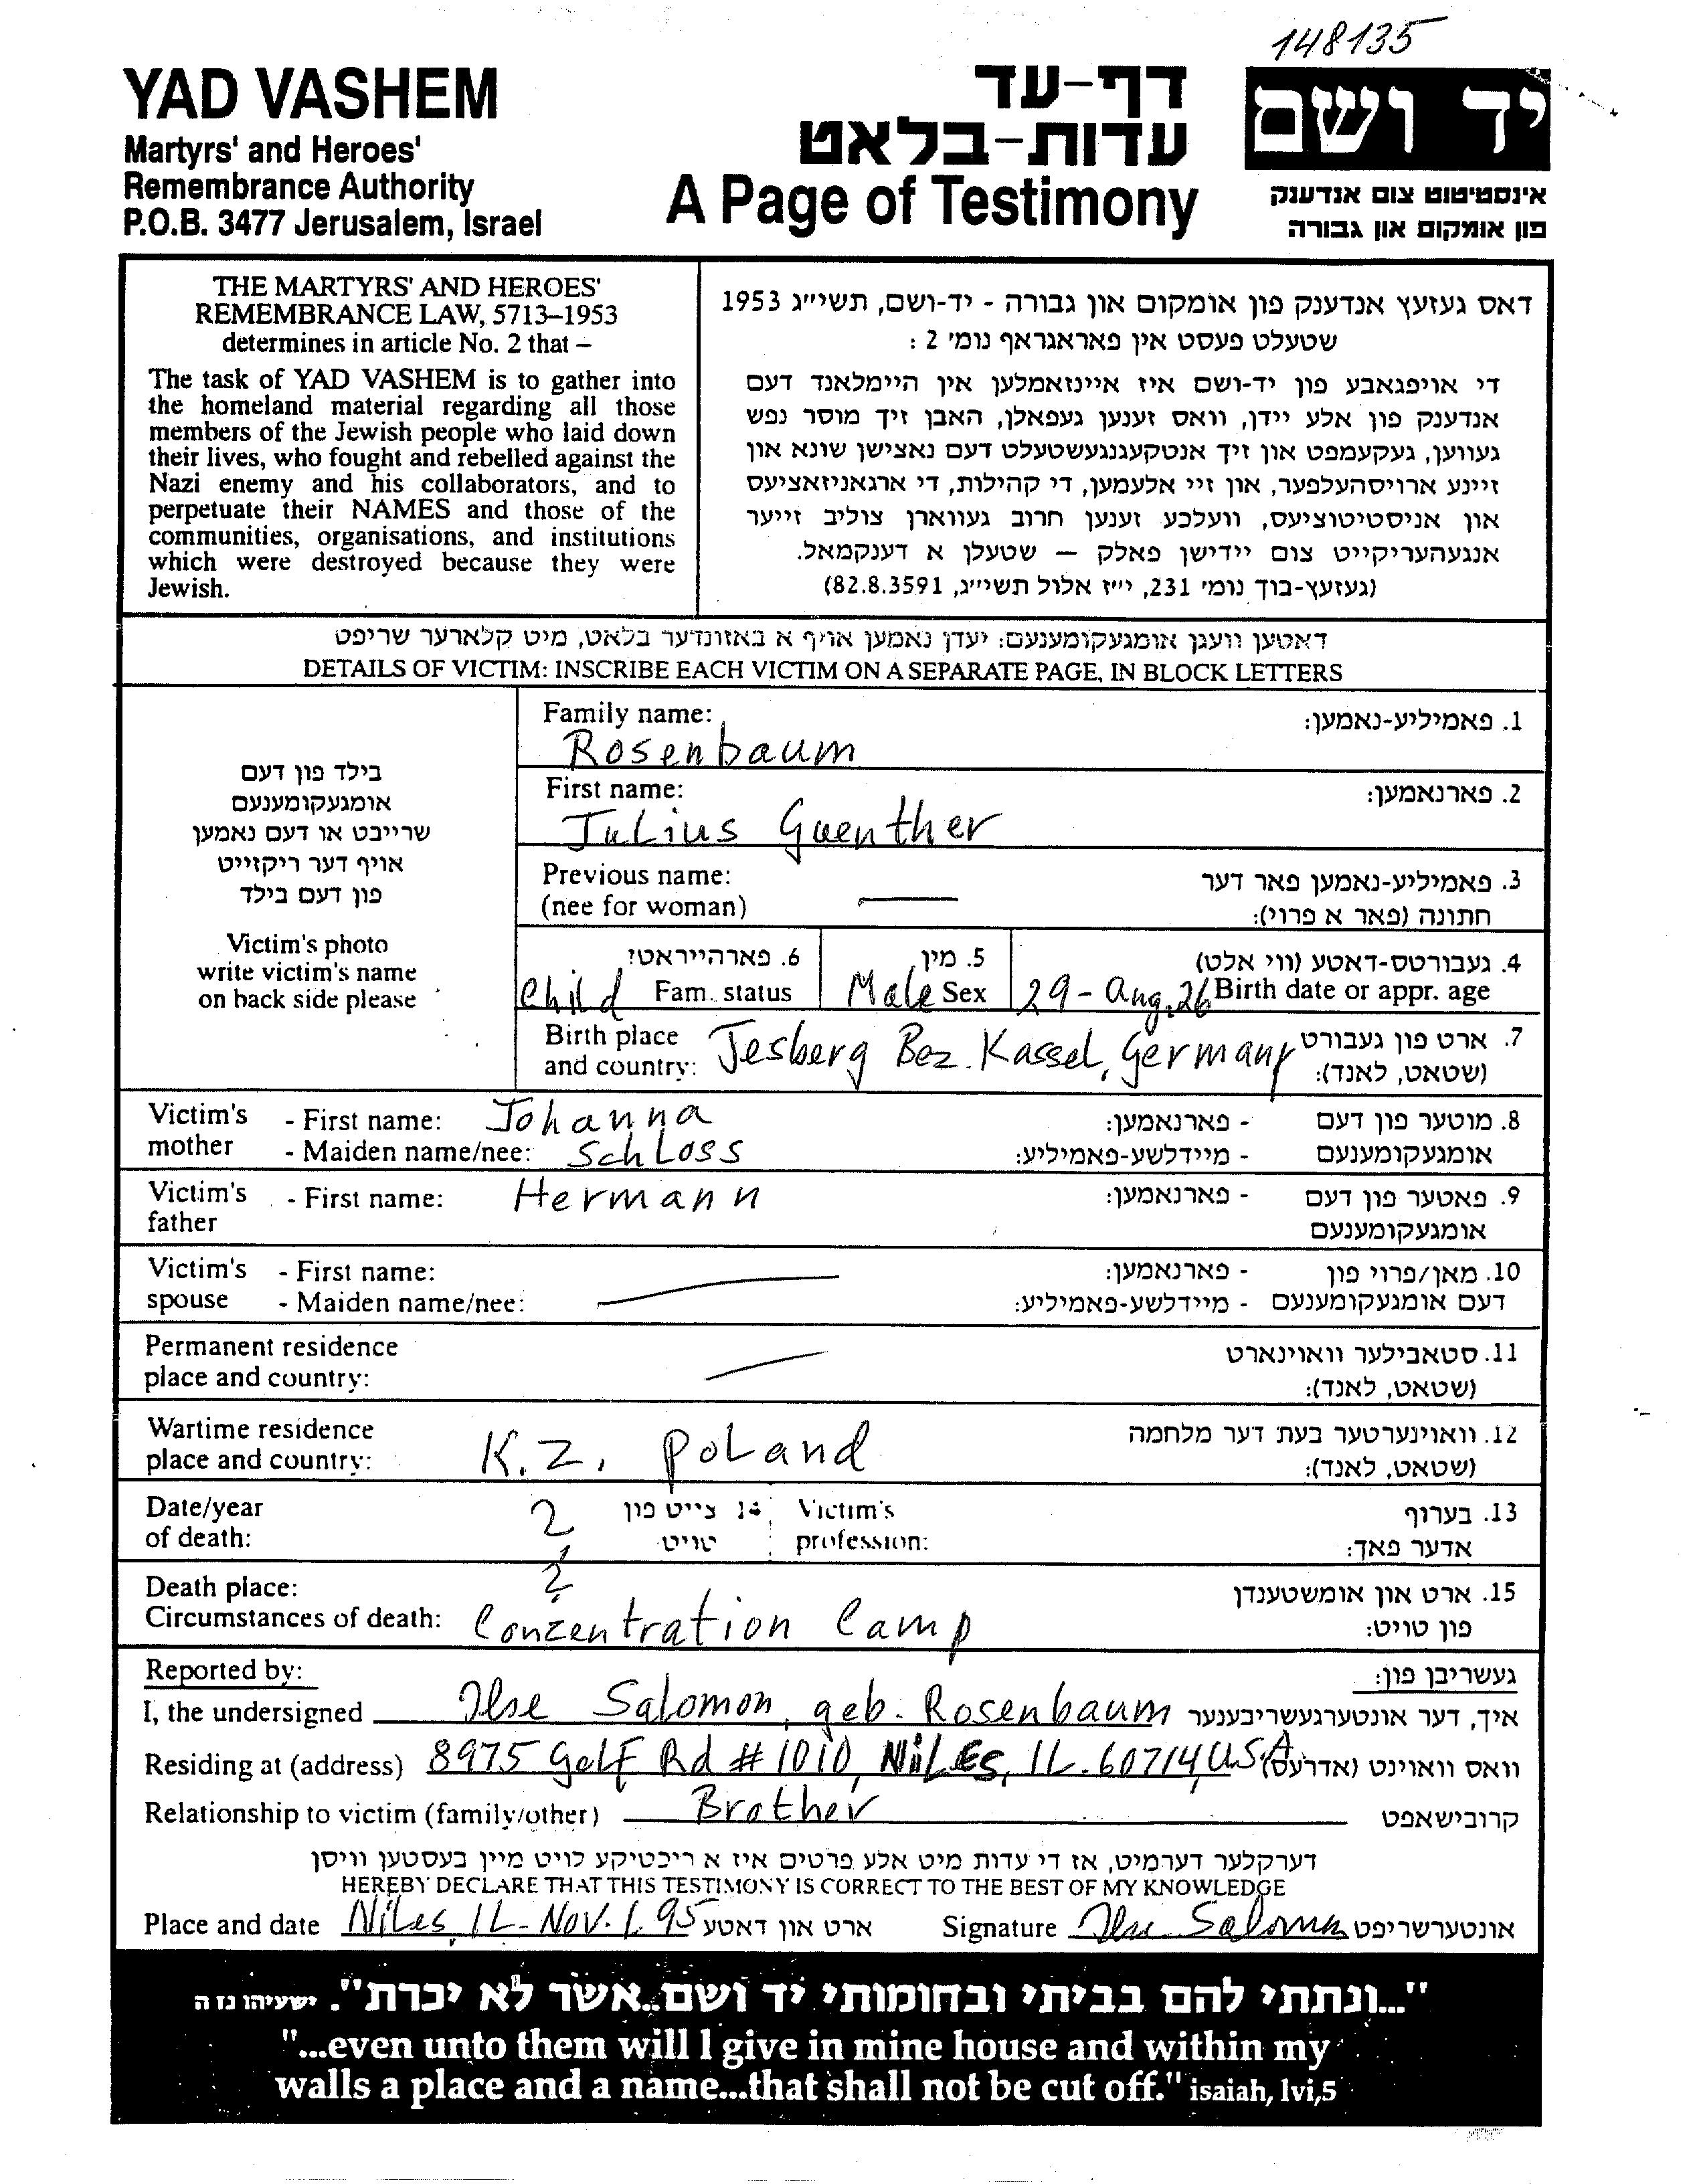 148135
YAD VASHEM
Martyrs' and Heroes'
Remembrance Authority
P.O.B. 3477 Jerusalem, Israel
דף-עד
עדות-בלאט
A Page of Testimony
יד ושם
אינסטיטוט צום אנדענק
פון אומקום און גבורה
THE MARTYRS' AND HEROES'
REMEMBRANCE LAW, 5713–1953
determines in article No. 2 that –
The task of YAD VASHEM is to gather into
the homeland material regarding all those
members of the Jewish people who laid down
their lives, who fought and rebelled against the
Nazi enemy and his collaborators, and to
perpetuate their NAMES and those of the
communities, organisations, and institutions
which were destroyed because they were
Jewish.
דאס געזעץ אנדענק פון אומקום און גבורה - יד-ושם, תשי״ג 1953
שטעלט פעסט אין פאראגראף נומ׳ 2 :
די אויפגאבע פון יד-ושם איז איינזאמלען אין היימלאנד דעם
אנדענק פון אלע יידן, וואס זענען געפאלן, האבן זיך מוסר נפש
געווען, געקעמפט און זיך אנטקעגנגעשטעלט דעם נאצישן שונא און
זיינע ארויסהעלפער, און זיי אלעמען, די קהילות, די ארגאניזאציעס
און אניסטיטוציעס, וועלכע זענען חרוב געווארן צוליב זייער
אנגעהעריקייט צום יידישן פאלק – שטעלן א דענקמאל.
(געזעץ-בוך נומ׳ 231, י״ז אלול תשי״ג, 82.8.3591)
דאטען וועגן אומגעקומענעם: יעדן נאמען אויף א באזונדער בלאט, מיט קלארער שריפט
DETAILS OF VICTIM: INSCRIBE EACH VICTIM ON A SEPARATE PAGE, IN BLOCK LETTERS
בילד פון דעם
אומגעקומענעם
שרייבט או דעם נאמען
אויף דער ריקזייט
פון דעם בילד
Victim's photo
write victim's name
on back side please
Family name: 1. פאמיליע-נאמען:
Rosenbaum
First name: 2. פארנאמען:
Julius Guenther
Previous name: 3. פאמיליע-נאמען פאר דער
(nee for woman) חתונה (פאר א פרוי):
6. פארהייראט? 5. מין 4. געבורטס-דאטע (ווי אלט)
Child Fam. status Male Sex 29 - Aug. 26 Birth date or appr. age
Birth place 7. ארט פון געבורט
and country: Jesberg Bez. Kassel, Germany (שטאט, לאנד):
Victim's - First name: Johanna - פארנאמען: 8. מוטער פון דעם
mother - Maiden name/nee: Schloss - מיידלשע-פאמיליע: אומגעקומענעם
Victim's - First name: Hermann - פארנאמען: 9. פאטער פון דעם
father אומגעקומענעם
Victim's - First name: - פארנאמען: 10. מאן/פרוי פון
spouse - Maiden name/nee: - מיידלשע-פאמיליע: דעם אומגעקומענעם
Permanent residence 11. סטאבילער וואוינארט
place and country: (שטאט, לאנד):
Wartime residence 12. וואוינערטער בעת דער מלחמה
place and country: K.Z. Poland (שטאט, לאנד):
Date/year ? 14. צייט פון Victim's 13. בערוף
of death: טויט profession: אדער פאך:
Death place: ? 15. ארט און אומשטענדן
Circumstances of death: Conzentration Camp פון טויט:
Reported by: געשריבן פון:
I, the undersigned Ilse Salomon, geb. Rosenbaum איך, דער אונטערגעשריבענער
Residing at (address) 8975 Golf Rd # 1010, Niles, IL. 60714, USA וואס וואוינט (אדרעס)
Relationship to victim (family/other) Brother קרובישאפט
דערקלער דערמיט, אז די עדות מיט אלע פרטים איז א ריכטיקע לויט מיין בעסטען וויסן
HEREBY DECLARE THAT THIS TESTIMONY IS CORRECT TO THE BEST OF MY KNOWLEDGE
Place and date Niles, IL - Nov. 1. 95 ארט און דאטע Signature Ilse Salomon אונטערשריפט
"...ונתתי להם בביתי ובחומותי יד ושם..אשר לא יכרת". ישעיהו נז ה
"...even unto them will I give in mine house and within my
walls a place and a name...that shall not be cut off." isaiah, lvi,5